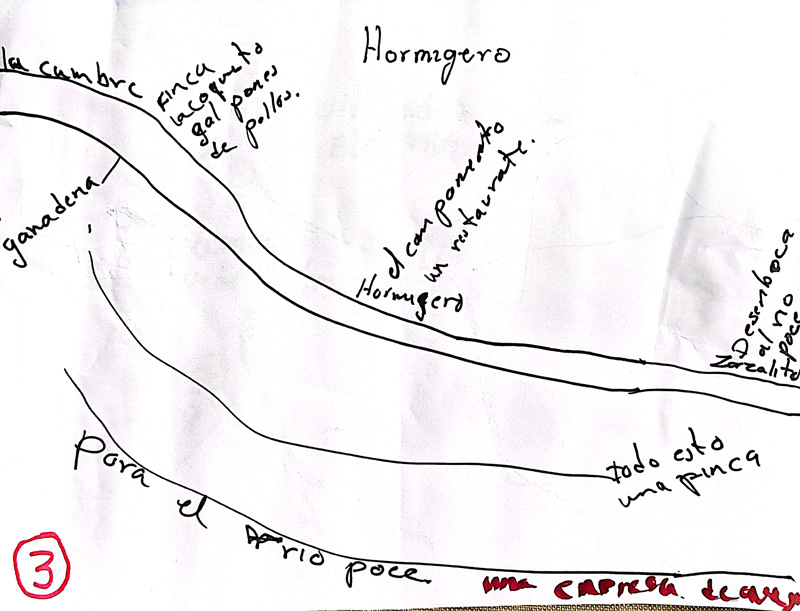 Hormigero
la cumbre
Finca
la coqueta
galpones
de pollos.
ganadena
el campamento
un restaurate.
Hormigero
Desemboca
al rio
poce
Zorzalito
todo esto
una finca
para el rio poce.
3
una empresa